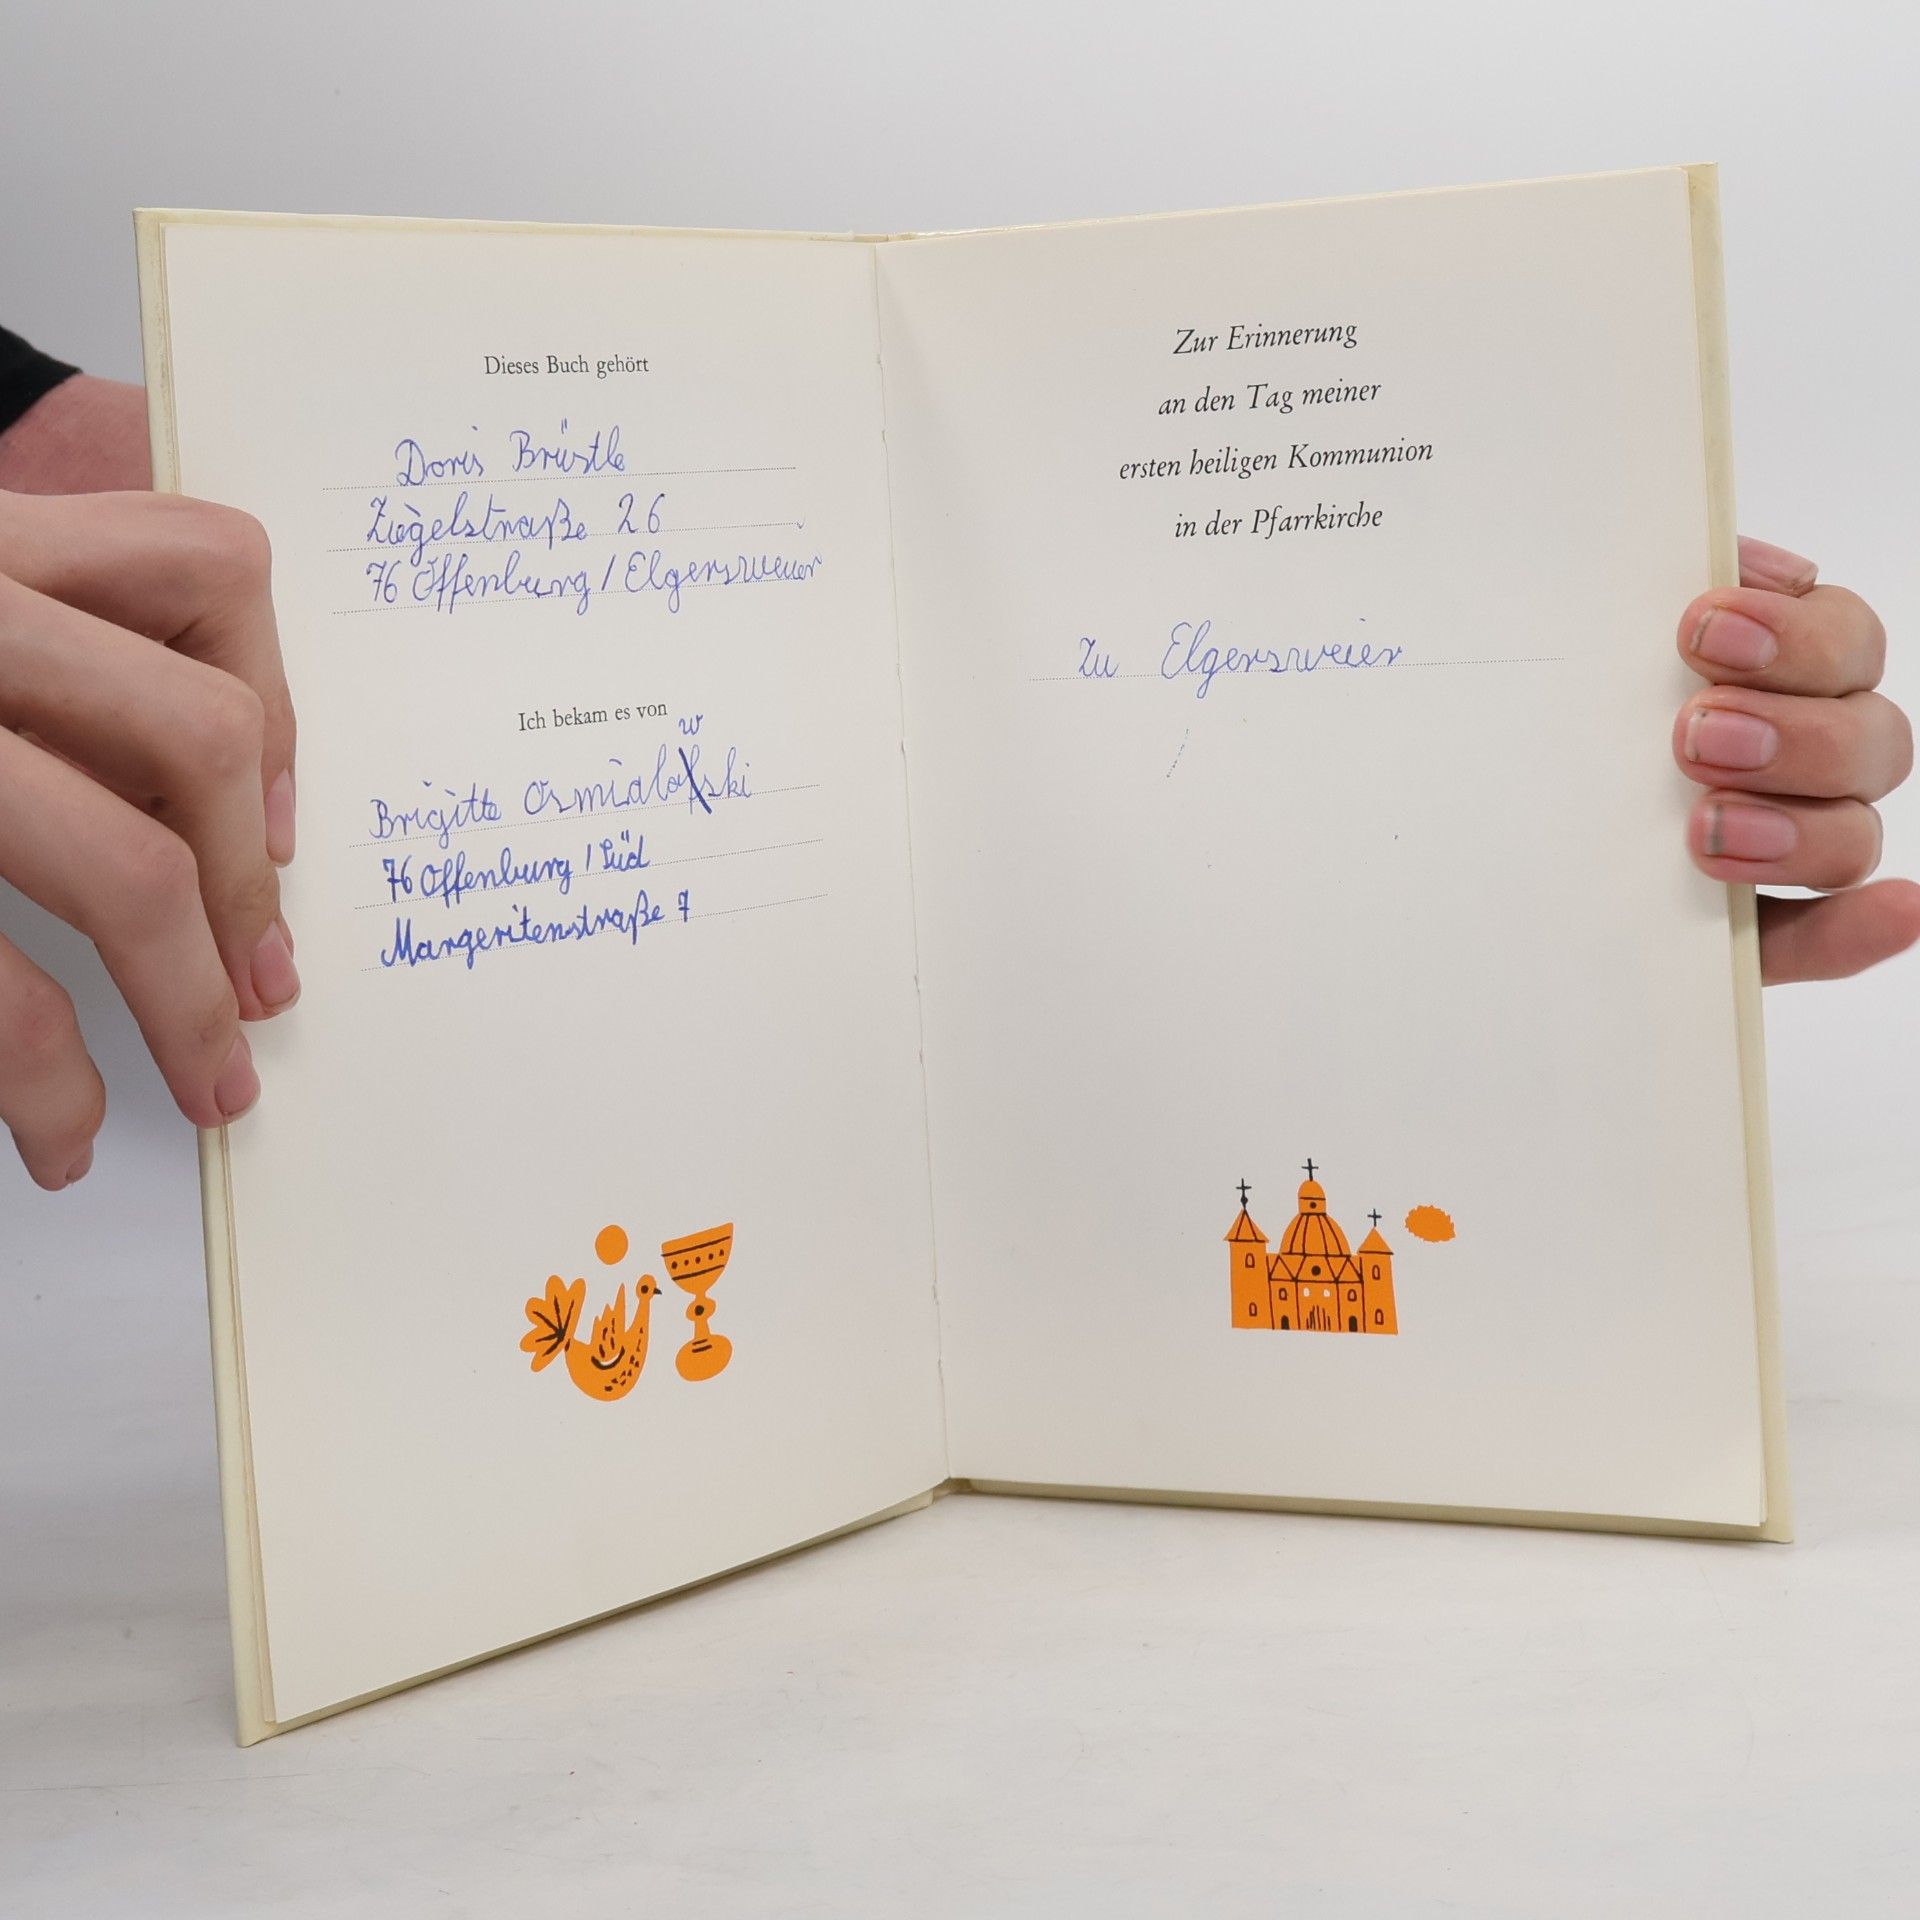 Dieses Buch gehört
Doris Brüstle
Ziegelstraße 26
76 Offenburg / Elgersweier
Ich bekam es von
w
Brigitte Osmialofski
76 Offenburg / Süd
Margeritenstraße 7
Zur Erinnerung
an den Tag meiner
ersten heiligen Kommunion
in der Pfarrkirche
Zu Elgersweier